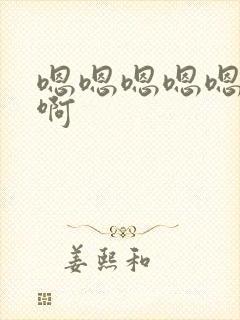 嗯嗯嗯嗯嗯
啊
姜熙和